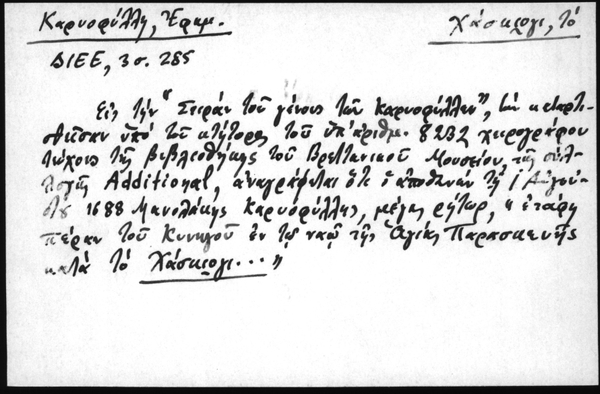 Καρυοφύλλη, Ἐφραμ. Χάσκιογι, τό
ΔΙΕΕ, 3 σ. 285
Εἰς τήν "Σειράν τοῦ γένους τῶν Καρυοφύλλων", τήν καταρτι-
σθεῖσαν ὑπό τοῦ κτήτορος τοῦ ὑπ' ἀριθμ. 8232 χειρογράφου
τεύχους τῆς βιβλιοθήκης τοῦ Βρεττανικοῦ Μουσείου, τῆς συλ-
λογῆς Additional, ἀναγράφεται ὅτι ὁ ἀποθανών τῇ 1 Αὐγού-
στου 1688 Μανολάκης Καρυοφύλλης, μέγας ρήτωρ, "ἐτάφη
πέραν τοῦ Κυνηγοῦ ἐν τῷ ναῷ τῆς Ἁγίας Παρασκευῆς
κατά τό Χάσκιογι..."